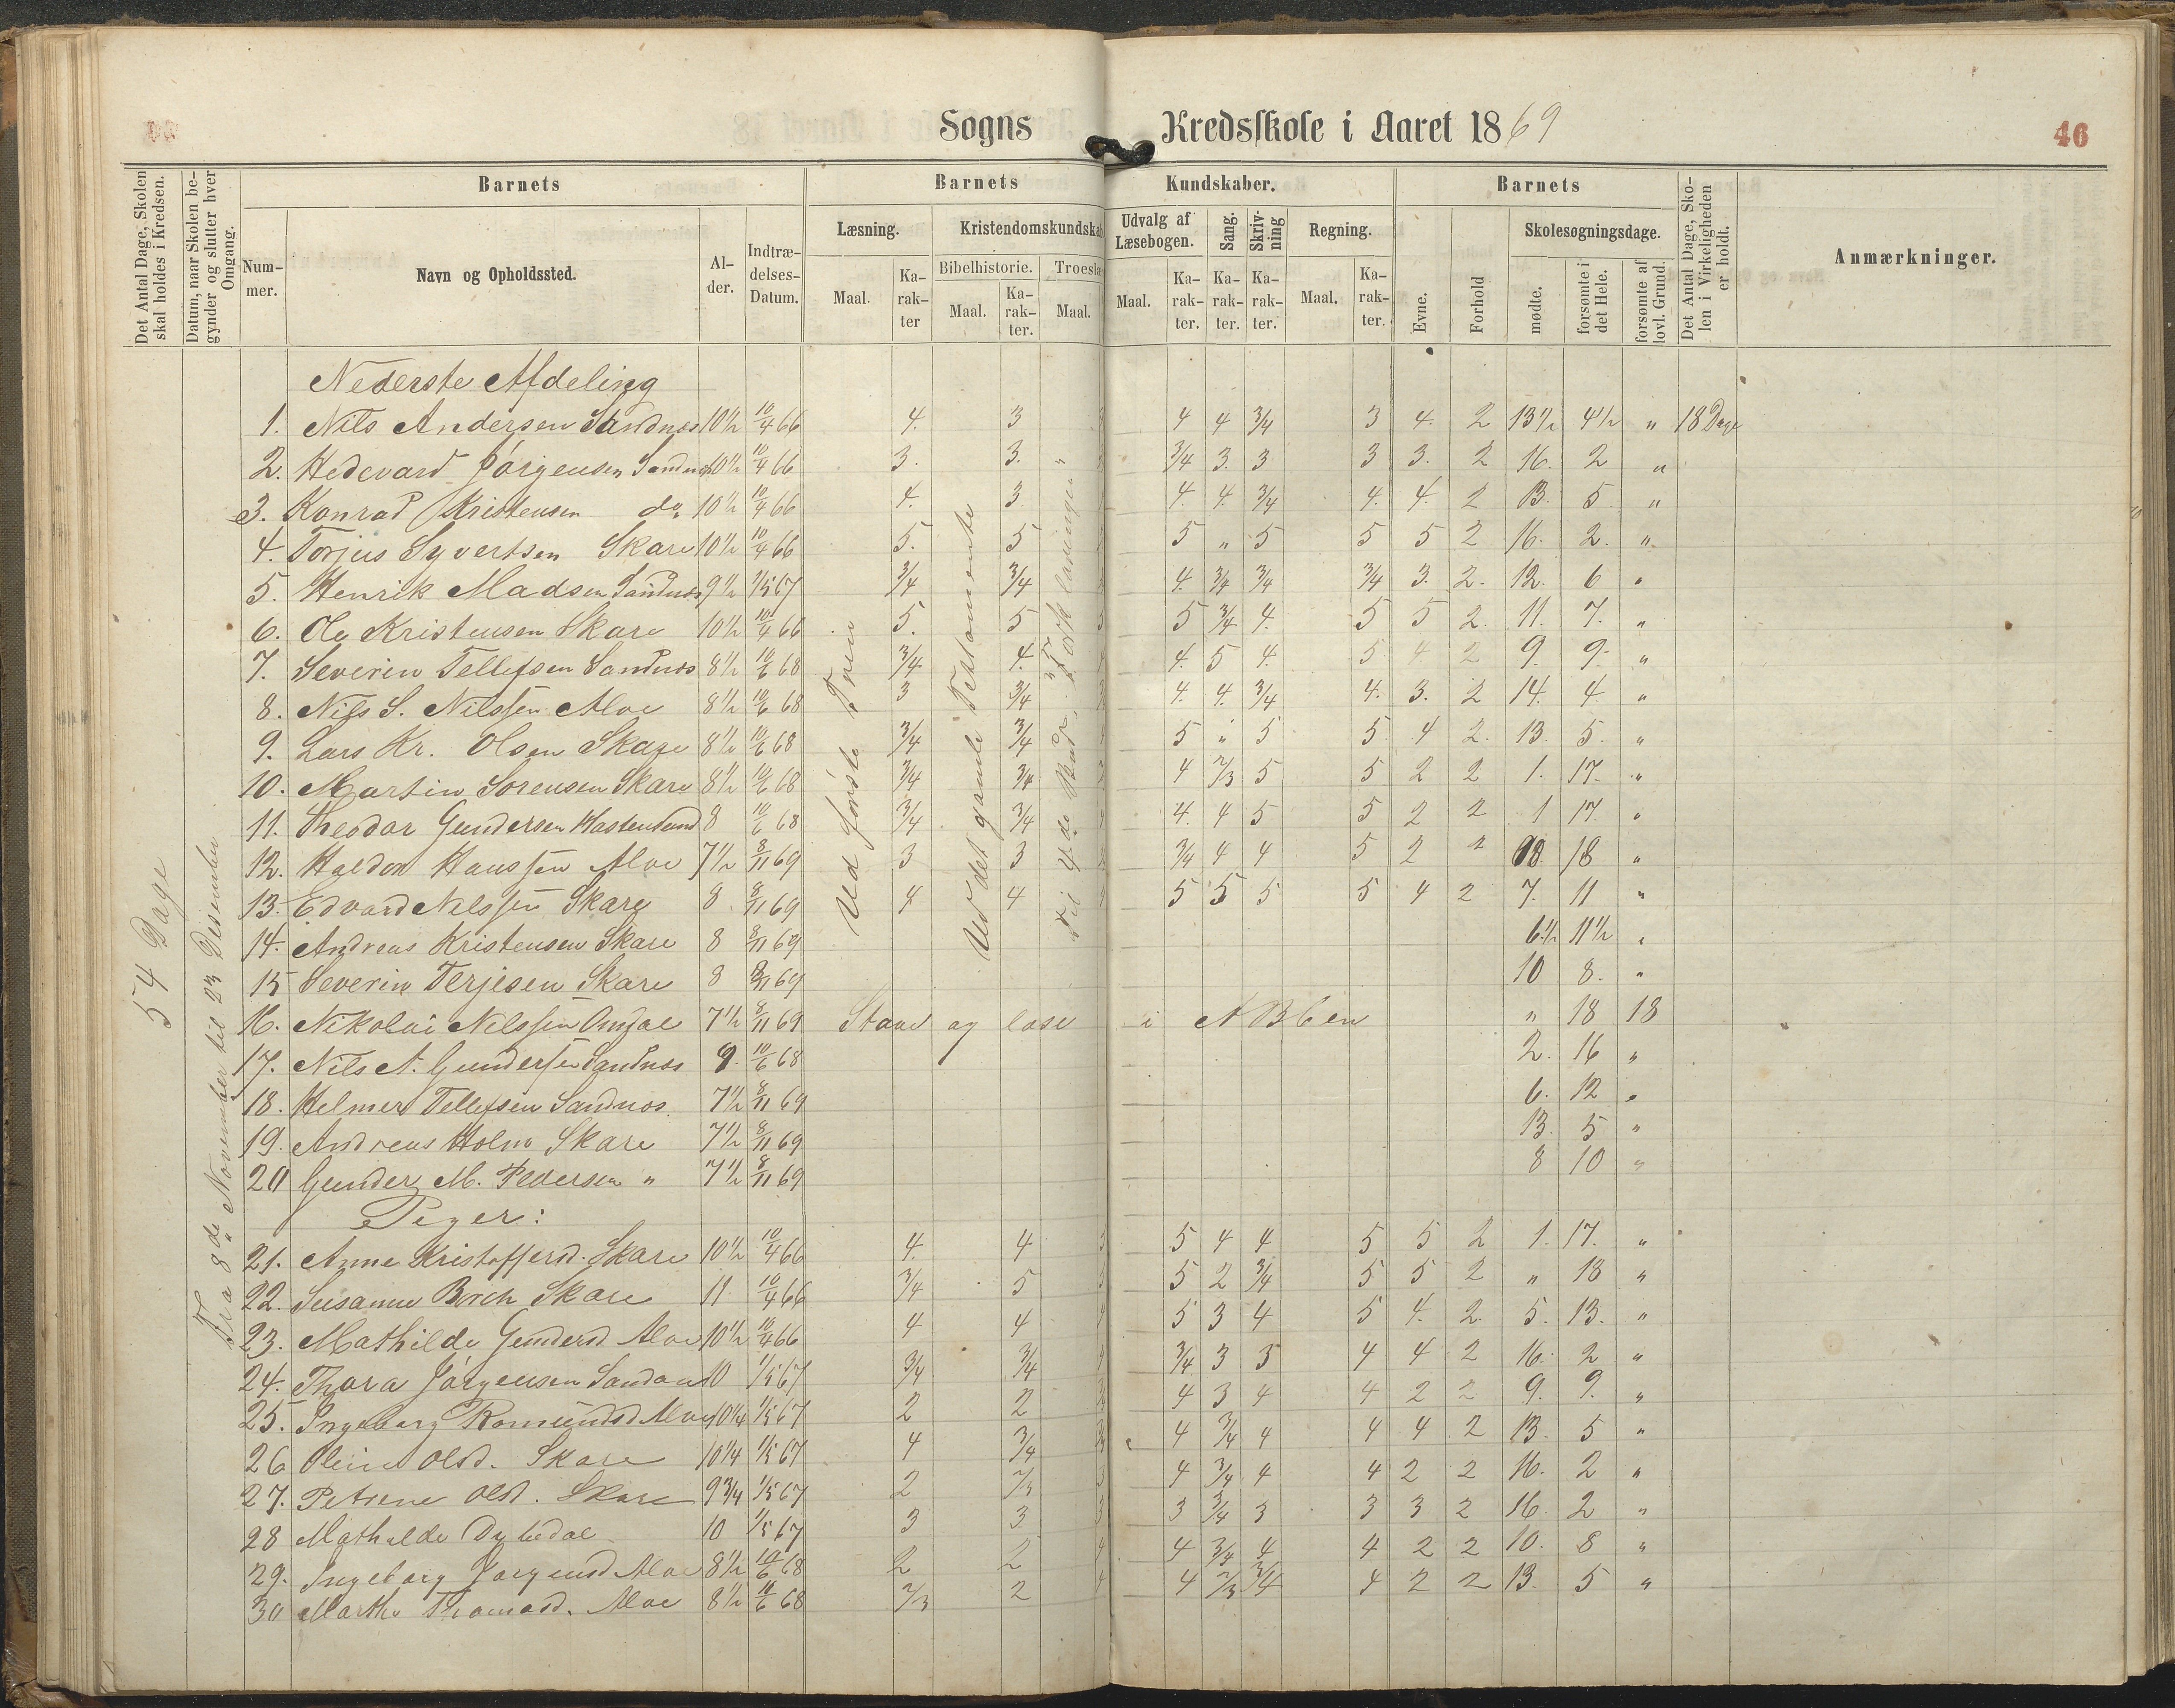 Sogns Kredsskole i Aaret 1869
46
Det Antal Dage, Skolen skal holdes i Kredsen.
Datum, naar Skolen begynder og slutter hver Omgang.
Barnets
Barnets Kundskaber.
Barnets
Det Antal Dage, Skolen i Virkeligheden er holdt.
Anmærkninger.
Nummer.
Navn og Opholdssted.
Alder.
Indtrædelses-Datum.
Læsning.
Kristendomskundskab
Udvalg af Læsebogen.
Sang.
Skrivning
Regning.
Evne.
Forhold
Skolesøgningsdage.
Bibelhistorie.
Troeslæ
Maal. Karakter Maal. Karakter. Maal.
Maal. Karakter. Karakter. Karakter. Maal. Karakter.
mødte.
forsømte i det Hele.
forsømte af lovl. Grund.
54 Dage
Fra 8de November til 23 Desember
Ved første Trin
Ved det gamle Testamente
Til 4de Bud, 3 Forklaringer
Nederste Afdeling
1. Nils Andersen Sandnes 10½ 10/4 66 4. 3 4 4 3/4 3 4. 2 13½ 4½ " 18 Dage
2. Hedevard Jörgensen Sandnes 10½ 10/4 66 3. 3. 3/4 3. 3 3 3. 2 16. 2 "
3. Konrad Kristensen do 10½ 10/4 66 4. 3 4. 4. 3/4 4. 4. 2 13. 5 "
4. Torjus Syvertsen Skare 10½ 10/4 66 5. 5 5 " 5 5 5 2 16. 2. "
5. Henrik Madsen Sandnes 9½ 1/5 67 3/4 3/4 4. 3/4 3/4 3/4 3. 2. 12. 6 "
6. Ole Kristensen Skare 10½ 10/4 66 5. 5 5 3/4 4. 5 5 2. 11. 7. "
7. Severin Tellefsen Sandnes 8½ 10/6 68 3/4 4. 4. 5 4. 5 4 2 9. 9. "
8. Nils S. Nilssen Aloe 8½ 10/6 68 3 3/4 4. 4. 3/4 4. 3. 2 14. 4. "
9. Lars Kr. Olsen Skare 8½ 10/6 68 3/4 3/4 5 " 5 5 4 2. 13. 5. "
10. Martin Sörensen Skare 8½ 10/6 68 3/4 3/4 4 2/3 5 5 2 2 1. 17. "
11. Theodor Gundersen Hastensund 8 10/6 68 3/4 3/4 4. 4 5 5 2 2 1 17. "
12. Haldor Hanssen Aloe 7½ 8/11 69 3 3 3/4 4 4 5 2 2 18 "
13. Edvard Nelssen Skare 8 8/11 69 4 4 5 5 5 5 4 2 7. 11 "
14. Andreas Kristensen Skare 8 8/11 69 6½ 11½ "
15 Severin Terjesen Skare 8 8/11 69 10 8. "
16. Nikolai Nelssen Omdal 7½ 8/11 69 Stave og læse i ABCen " 18 18
17. Nils A. Gundersen Sandnes 9. 10/6 68 2. 16 "
18. Helmer Tellefsen Sandnes 7½ 8/11 69 6. 12 "
19. Andreas Holm Skare 7½ 8/11 69 13. 5 "
20 Gunder M. Pedersen " 7½ 8/11 69 8 10 "
Piger:
21. Anne Kristoffersd. Skare 10½ 10/4 66 4. 4 5 4 4 5 5 2 1. 17. "
22. Susanne Borch Skare 11 10/4 66 3/4 5 5 2 3/4 5 5 2 " 18 "
23. Mathilde Gundersd Aloe 10½ 10/4 66 4 4 5 3 4 5 4. 2. 5. 13. "
24. Thora Jörgensen Sandnes 10 1/5 67 3/4 3/4 3/4 3 3 4 4 2 16. 2 "
25. Ingeborg Romundsd Aloe 10¼ 1/5 67 2 2 4 3 4 4 2 2 9. 9. "
26 Oline Olsd. Skare 10¼ 1/5 67 4 3/4 4 3/4 4 4 4 2 13. 5 "
27. Petrine Olsd. Skare 9¾ 1/5 67 2 2/3 4 3/4 4 4 2 2 16. 2 "
28 Mathilde Dybedal 10 1/5 67 3 3 3 3/4 3 3 3 2 16. 2 "
29. Ingeborg Jörgensd Aloe 8½ 10/6 68 2 2 4 3/4 4 4 2 2 10. 8 "
30 Marthe Thomasd. Aloe 8½ 10/6 68 2/3 2 4 2/3 3/4 4 2 2 13. 5 "